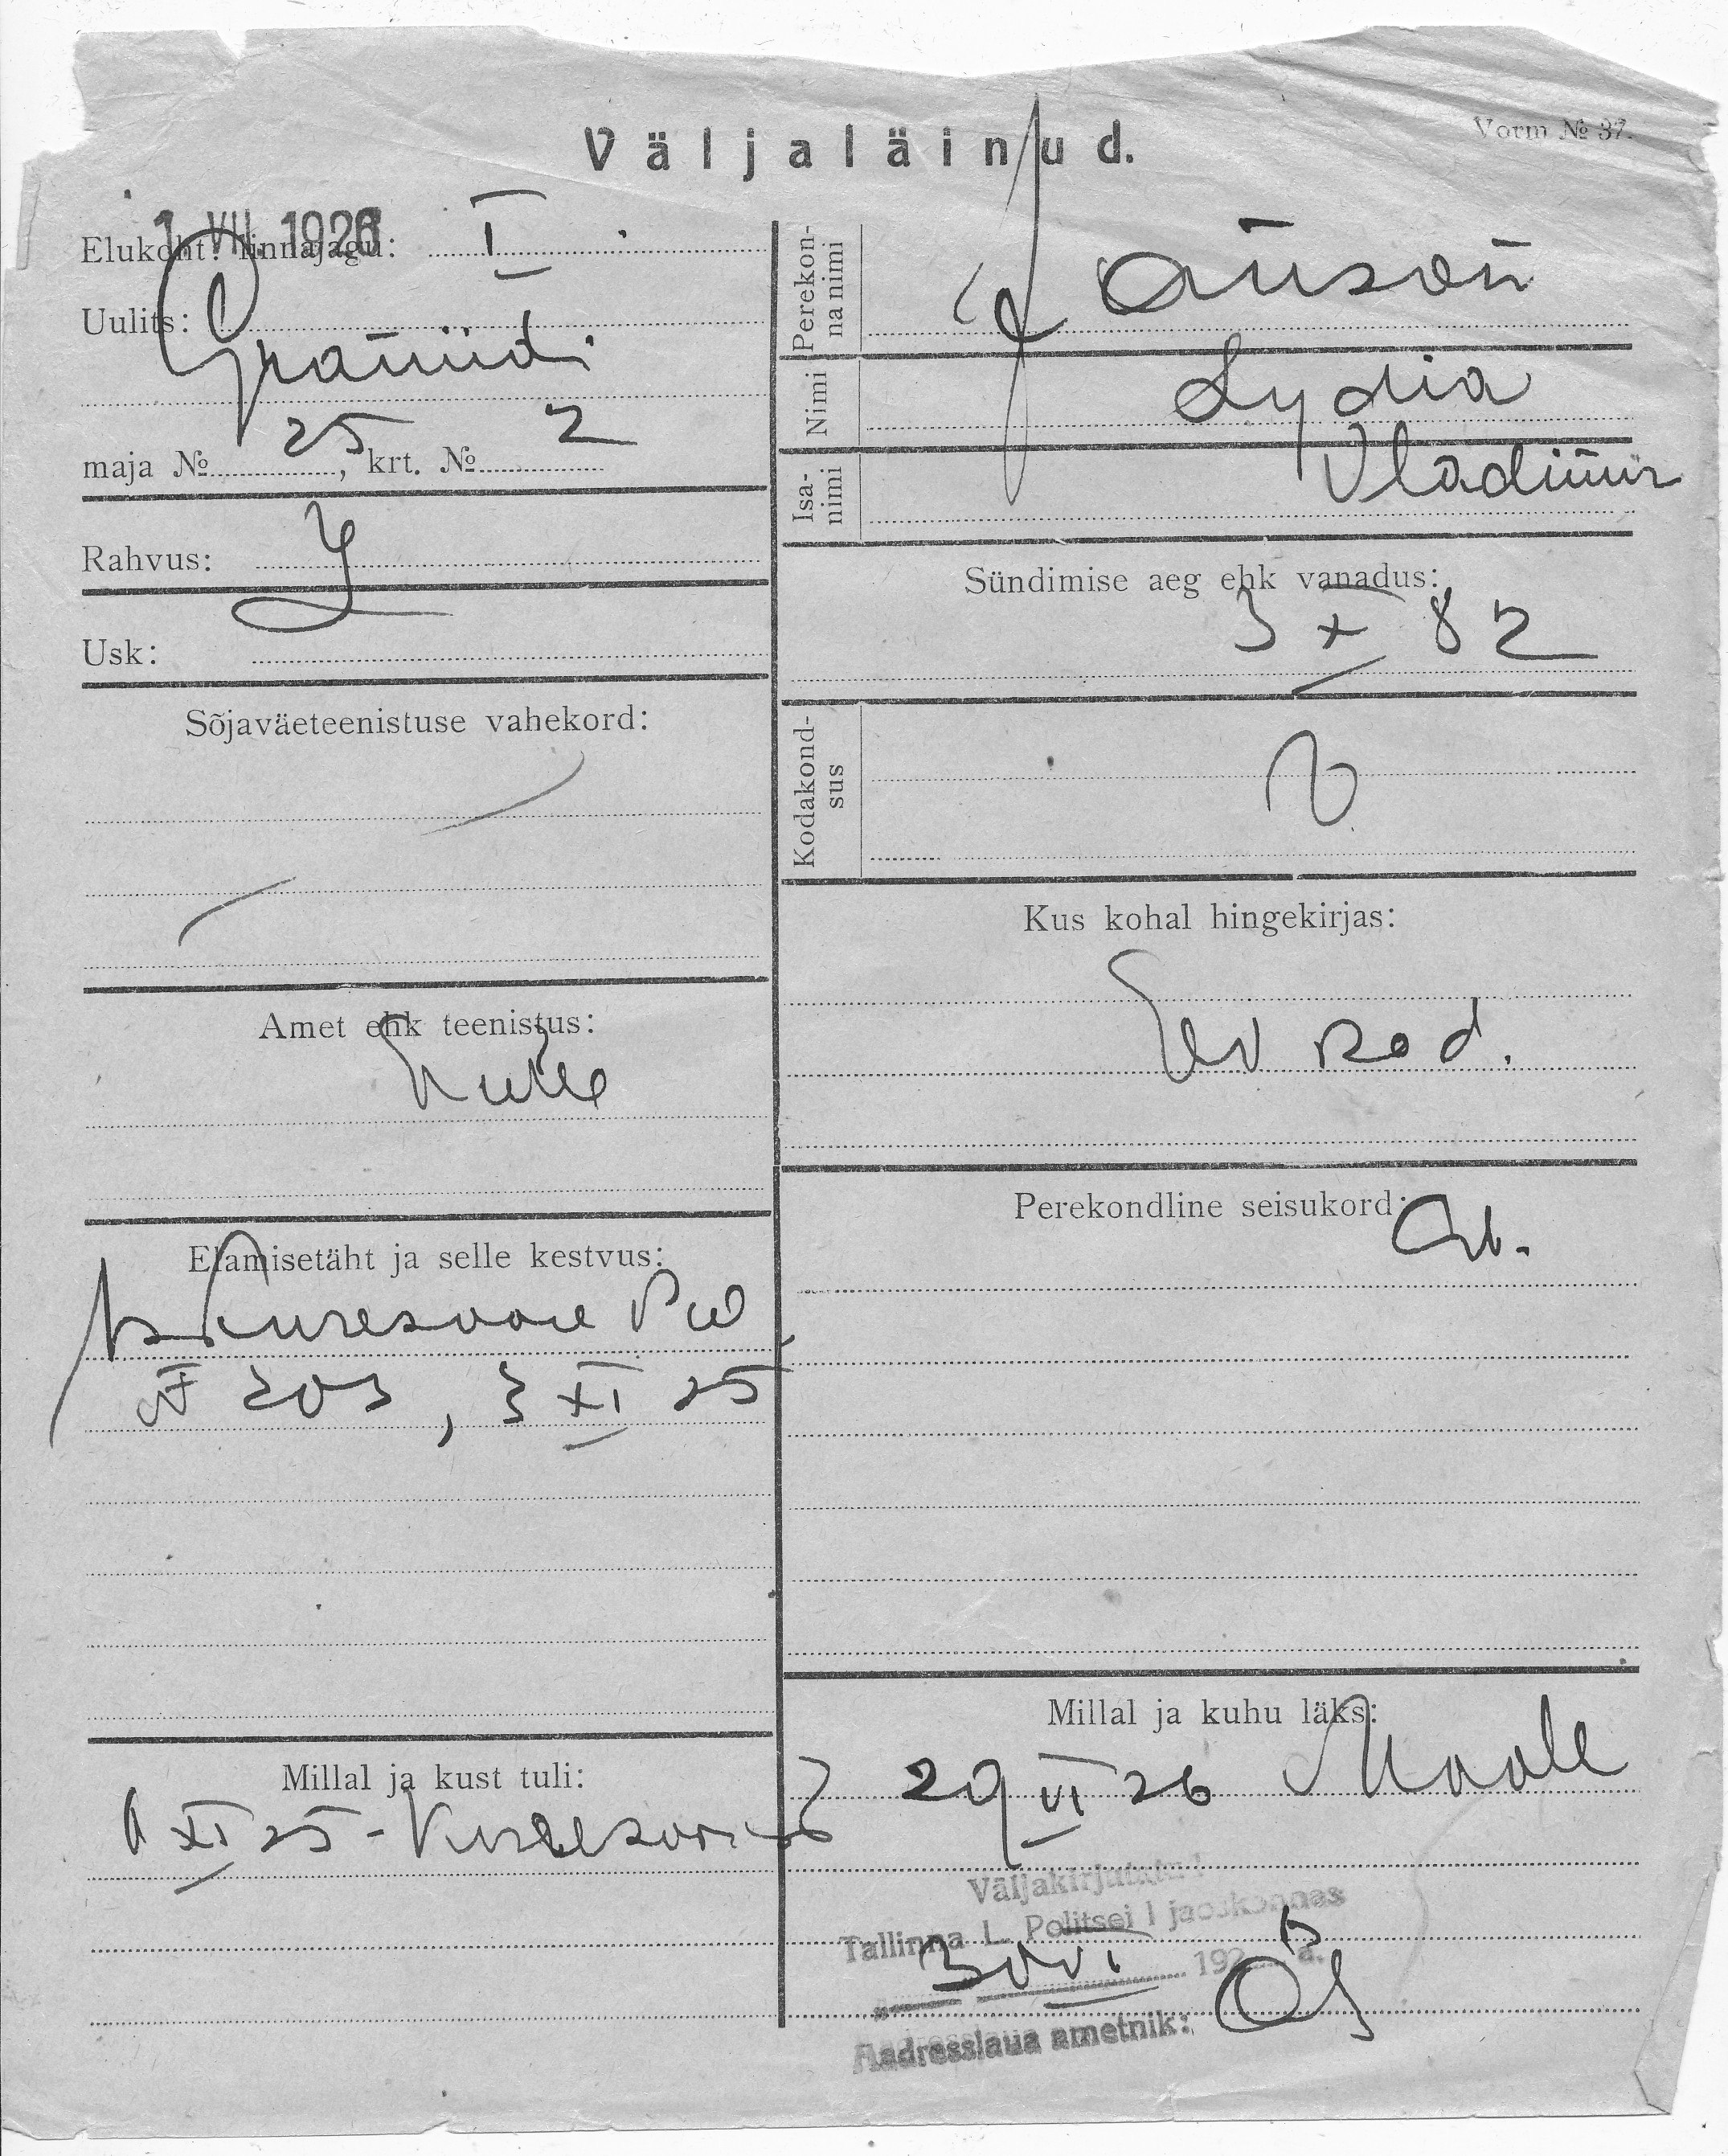 Väljaläinud.
Vorm № 37.
1 VII 1926
Elukoht: linnajagu: I
Uulits:
Graniidi
maja № 25, krt. № 2
Rahvus:
Usk:
Sõjaväeteenistuse vahekord:
Amet ehk teenistus:
Elamisetäht ja selle kestvus:
Kuresaare Pol
№ 203, 3 XI 25
Millal ja kust tuli:
XI 25 - Kuresaarest
Perekonna nimi
Jauson
Nimi
Lydia
Isanimi
Vladimir
Sündimise aeg ehk vanadus:
3 X 82
Kodakondsus
Kus kohal hingekirjas:
Perekondline seisukord:
Millal ja kuhu läks:
29 VI 26 Maale
Väljakirjutatud
Tallinna L. Politsei I jaoskonnas
30 VI 192 a.
Aadresslaua ametnik: